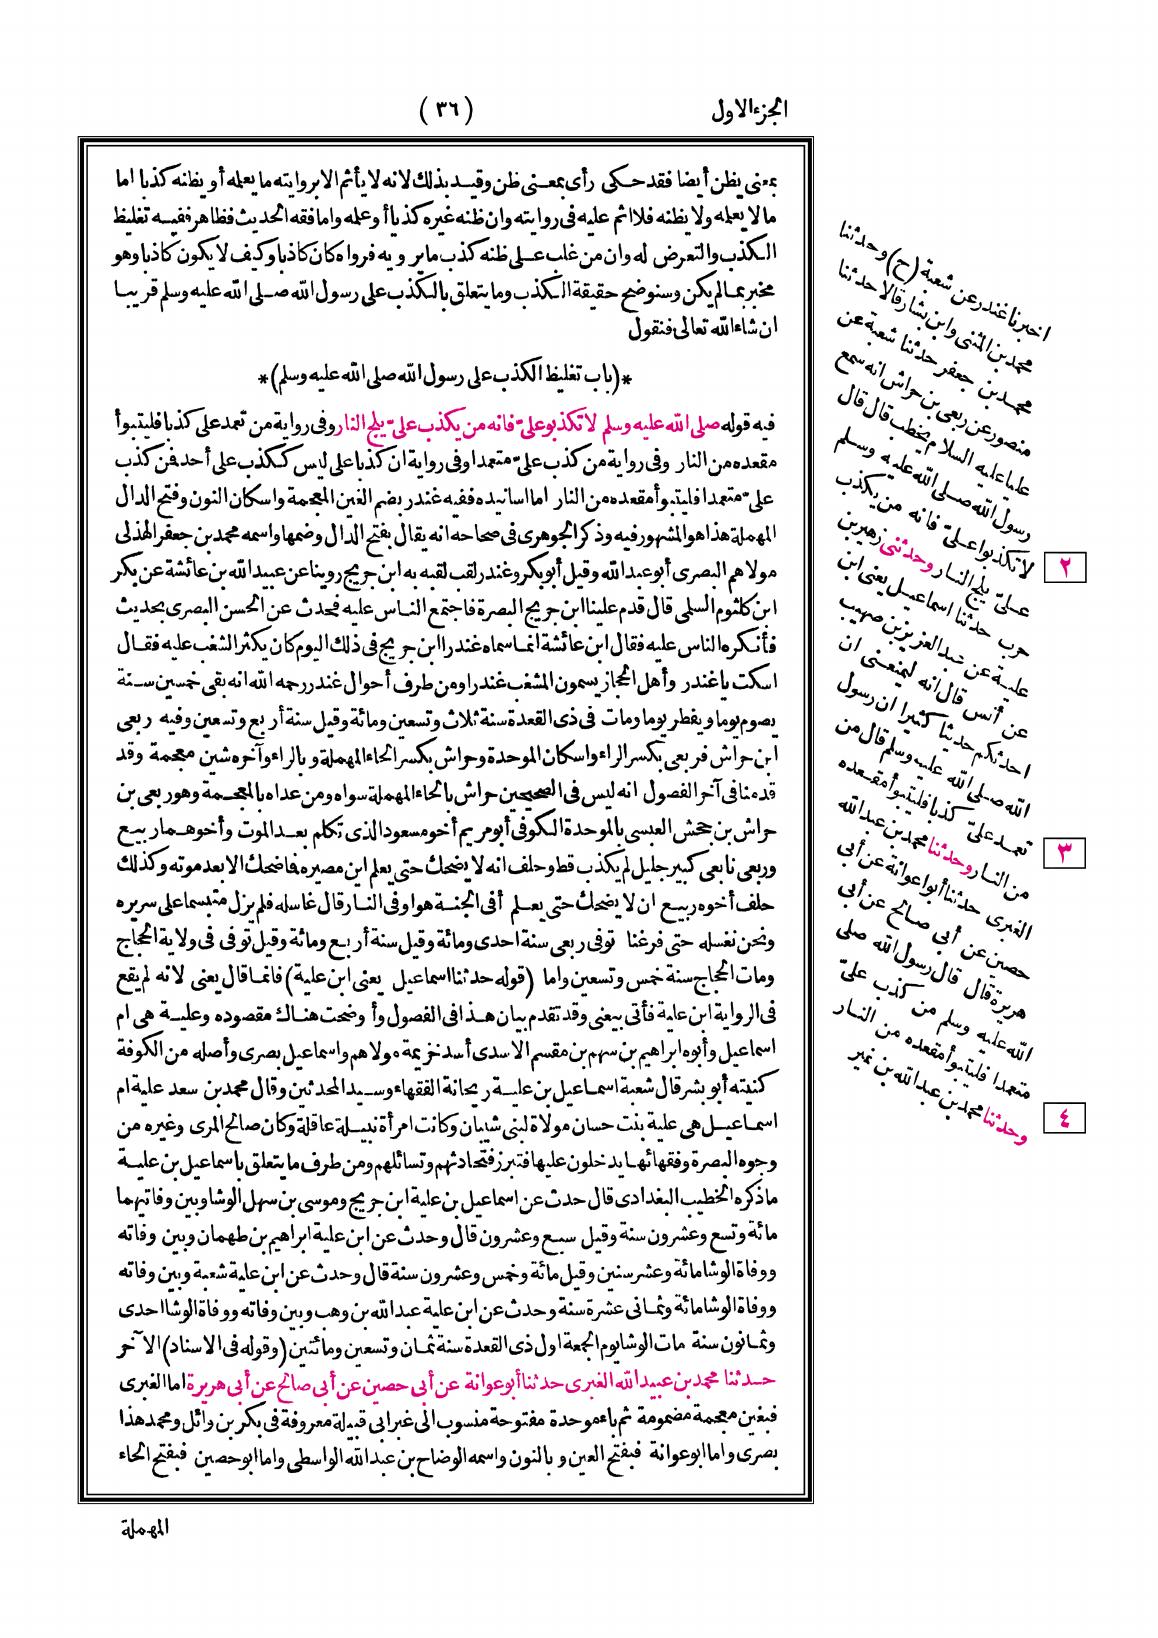 الجزء الاول
(٣٦)
بمعنى يظن أيضا فقد حكى رأى بمعنى ظن وقيد بذلك لانه لا يأثم الا بروايته ما يعلمه أو يظنه كذبا اما
ما لا يعلمه ولا يظنه فلا اثم عليه فى روايته وان ظنه غيره كذبا أو علمه واما فقه الحديث فظاهر ففيه تغليظ
الكذب والتعرض له وان من غلب على ظنه كذب ما يرويه فرواه كان كاذبا وكيف لا يكون كاذبا وهو
مخبر بما لم يكن وسنوضح حقيقة الكذب وما يتعلق بالكذب على رسول الله صلى الله عليه وسلم قريبا
ان شاء الله تعالى فنقول
*(باب تغليظ الكذب على رسول الله صلى الله عليه وسلم)*
فيه قوله صلى الله عليه وسلم لا تكذبو علىّ فانه من يكذب علىّ يلج النار وفى رواية من تعمد على كذبا فليتبوأ
مقعده من النار وفى رواية من كذب علىّ متعمدا وفى رواية ان كذبا على ليس ككذب على أحد فمن كذب
علىّ متعمدا فليتبوأ مقعده من النار اما اسانيده ففيه غندر بضم الغين المعجمة واسكان النون وفتح الدال
المهملة هذا هو المشهور فيه وذكر الجوهرى فى صحاحه انه يقال بفتح الدال وضمها واسمه محمد بن جعفر الهذلى
مولاهم البصرى أبو عبد الله وقيل أبو بكر وغندر لقب لقبه به ابن جريج روينا عن عبيد الله بن عائشة عن بكر
ابن كلثوم السلمى قال قدم علينا ابن جريج البصرة فاجتمع الناس عليه فحدث عن الحسن البصرى بحديث
فأنكره الناس عليه فقال ابن عائشة انما سماه غندرا ابن جريج فى ذلك اليوم كان يكثر الشغب عليه فقال
اسكت يا غندر وأهل الحجاز يسمون المشغب غندرا ومن طرف أحوال غندر رحمه الله انه بقى خمسين سنة
يصوم يوما ويفطر يوما ومات فى ذى القعدة سنة ثلاث وتسعين ومائة وقيل سنة أربع وتسعين وفيه ربعى
ابن حراش فربعى بكسر الراء واسكان الموحدة وحراش بكسر الحاء المهملة وبالراء وآخره شين معجمة وقد
قدمنا فى آخر الفصول انه ليس فى الصحيحين حراش بالحاء المهملة سواه ومن عداه بالمعجمة وهو ربعى بن
حراش بن جحش العبسى بالموحدة الكوفى أبو مريم أخو مسعود الذى تكلم بعد الموت وأخوهما ربيع
وربعى تابعى كبير جليل لم يكذب قط وحلف انه لا يضحك حتى يعلم اين مصيره فاضحك الا بعد موته وكذلك
حلف أخوه ربيع ان لا يضحك حتى يعلم أفى الجنة هو او فى النار قال غاسله فلم يزل متبسما على سريره
ونحن نغسله حتى فرغنا توفى ربعى سنة احدى ومائة وقيل سنة أربع ومائة وقيل توفى فى ولاية الحجاج
ومات الحجاج سنة خمس وتسعين واما (قوله حدثنا اسماعيل يعنى ابن علية) فانما قال يعنى لانه لم يقع
فى الرواية ابن علية فأتى بيعنى وقد تقدم بيان هذا فى الفصول وأوضحت هناك مقصوده وعلية هى ام
اسماعيل وأبوه ابراهيم بن سهم بن مقسم الاسدى أسد خزيمة مولاهم واسماعيل بصرى وأصله من الكوفة
كنيته أبو بشر قال شعبة اسماعيل بن علية ريحانة الفقهاء وسيد المحدثين وقال محمد بن سعد علية ام
اسماعيل هى علية بنت حسان مولاة لبنى شيبان وكانت امرأة نبيلة عاقلة وكان صالح المرى وغيره من
وجوه البصرة وفقهائها يدخلون عليها فتبرز فتحادثهم وتسائلهم ومن طرف ما يتعلق باسماعيل بن علية
ما ذكره الخطيب البغدادى قال حدث عن اسماعيل بن علية ابن جريج وموسى بن سهل الوشا وبين وفاتيهما
مائة وتسع وعشرون سنة وقيل سبع وعشرون قال وحدث عن ابن علية ابراهيم بن طهمان وبين وفاته
ووفاة الوشا مائة وعشر سنين وقيل مائة وخمس وعشرون سنة قال وحدث عن ابن علية شعبة وبين وفاته
ووفاة الوشا مائة وثمانى عشرة سنة وحدث عن ابن علية عبد الله بن وهب وبين وفاته ووفاة الوشا احدى
وثمانون سنة مات الوشا يوم الجمعة اول ذى القعدة سنة ثمان وتسعين ومائتين (وقوله فى الاسناد) الآخر
حدثنا محمد بن عبيد الله الغبرى حدثنا أبو عوانة عن أبى حصين عن أبى صالح عن أبى هريرة اما الغبرى
فبغين معجمة مضمومة ثم باء موحدة مفتوحة منسوب الى غبر ابى قبيلة معروفة فى بكر بن وائل ومحمد هذا
بصرى واما ابو عوانة فبفتح العين وبالنون واسمه الوضاح بن عبد الله الواسطى واما ابو حصين فبفتح الحاء
المهملة
اخبرنا غندر عن شعبة (ح) وحدثنا
محمد بن المثنى وابن بشار قالا حدثنا
محمد بن جعفر حدثنا شعبة عن
منصور عن ربعى بن حراش انه سمع
عليا عليه السلام يخطب قال قال
رسول الله صلى الله عليه وسلم
لا تكذبوا علىّ فانه من يكذب
علىّ يلج النار وحدثنى زهير بن
حرب حدثنا اسماعيل يعنى ابن
علية عن عبد العزيز بن صهيب
عن أنس قال انه ليمنعنى ان
احدثكم حديثا كثيرا ان رسول
الله صلى الله عليه وسلم قال من
تعمد علىّ كذبا فليتبوأ مقعده
من النار وحدثنا محمد بن عبد الله
الغبرى حدثنا أبو عوانة عن أبى
حصين عن أبى صالح عن أبى
هريرة قال قال رسول الله صلى
الله عليه وسلم من كذب علىّ
متعمدا فليتبوأ مقعده من النار
وحدثنا محمد بن عبد الله بن نمير
٢
٣
٤